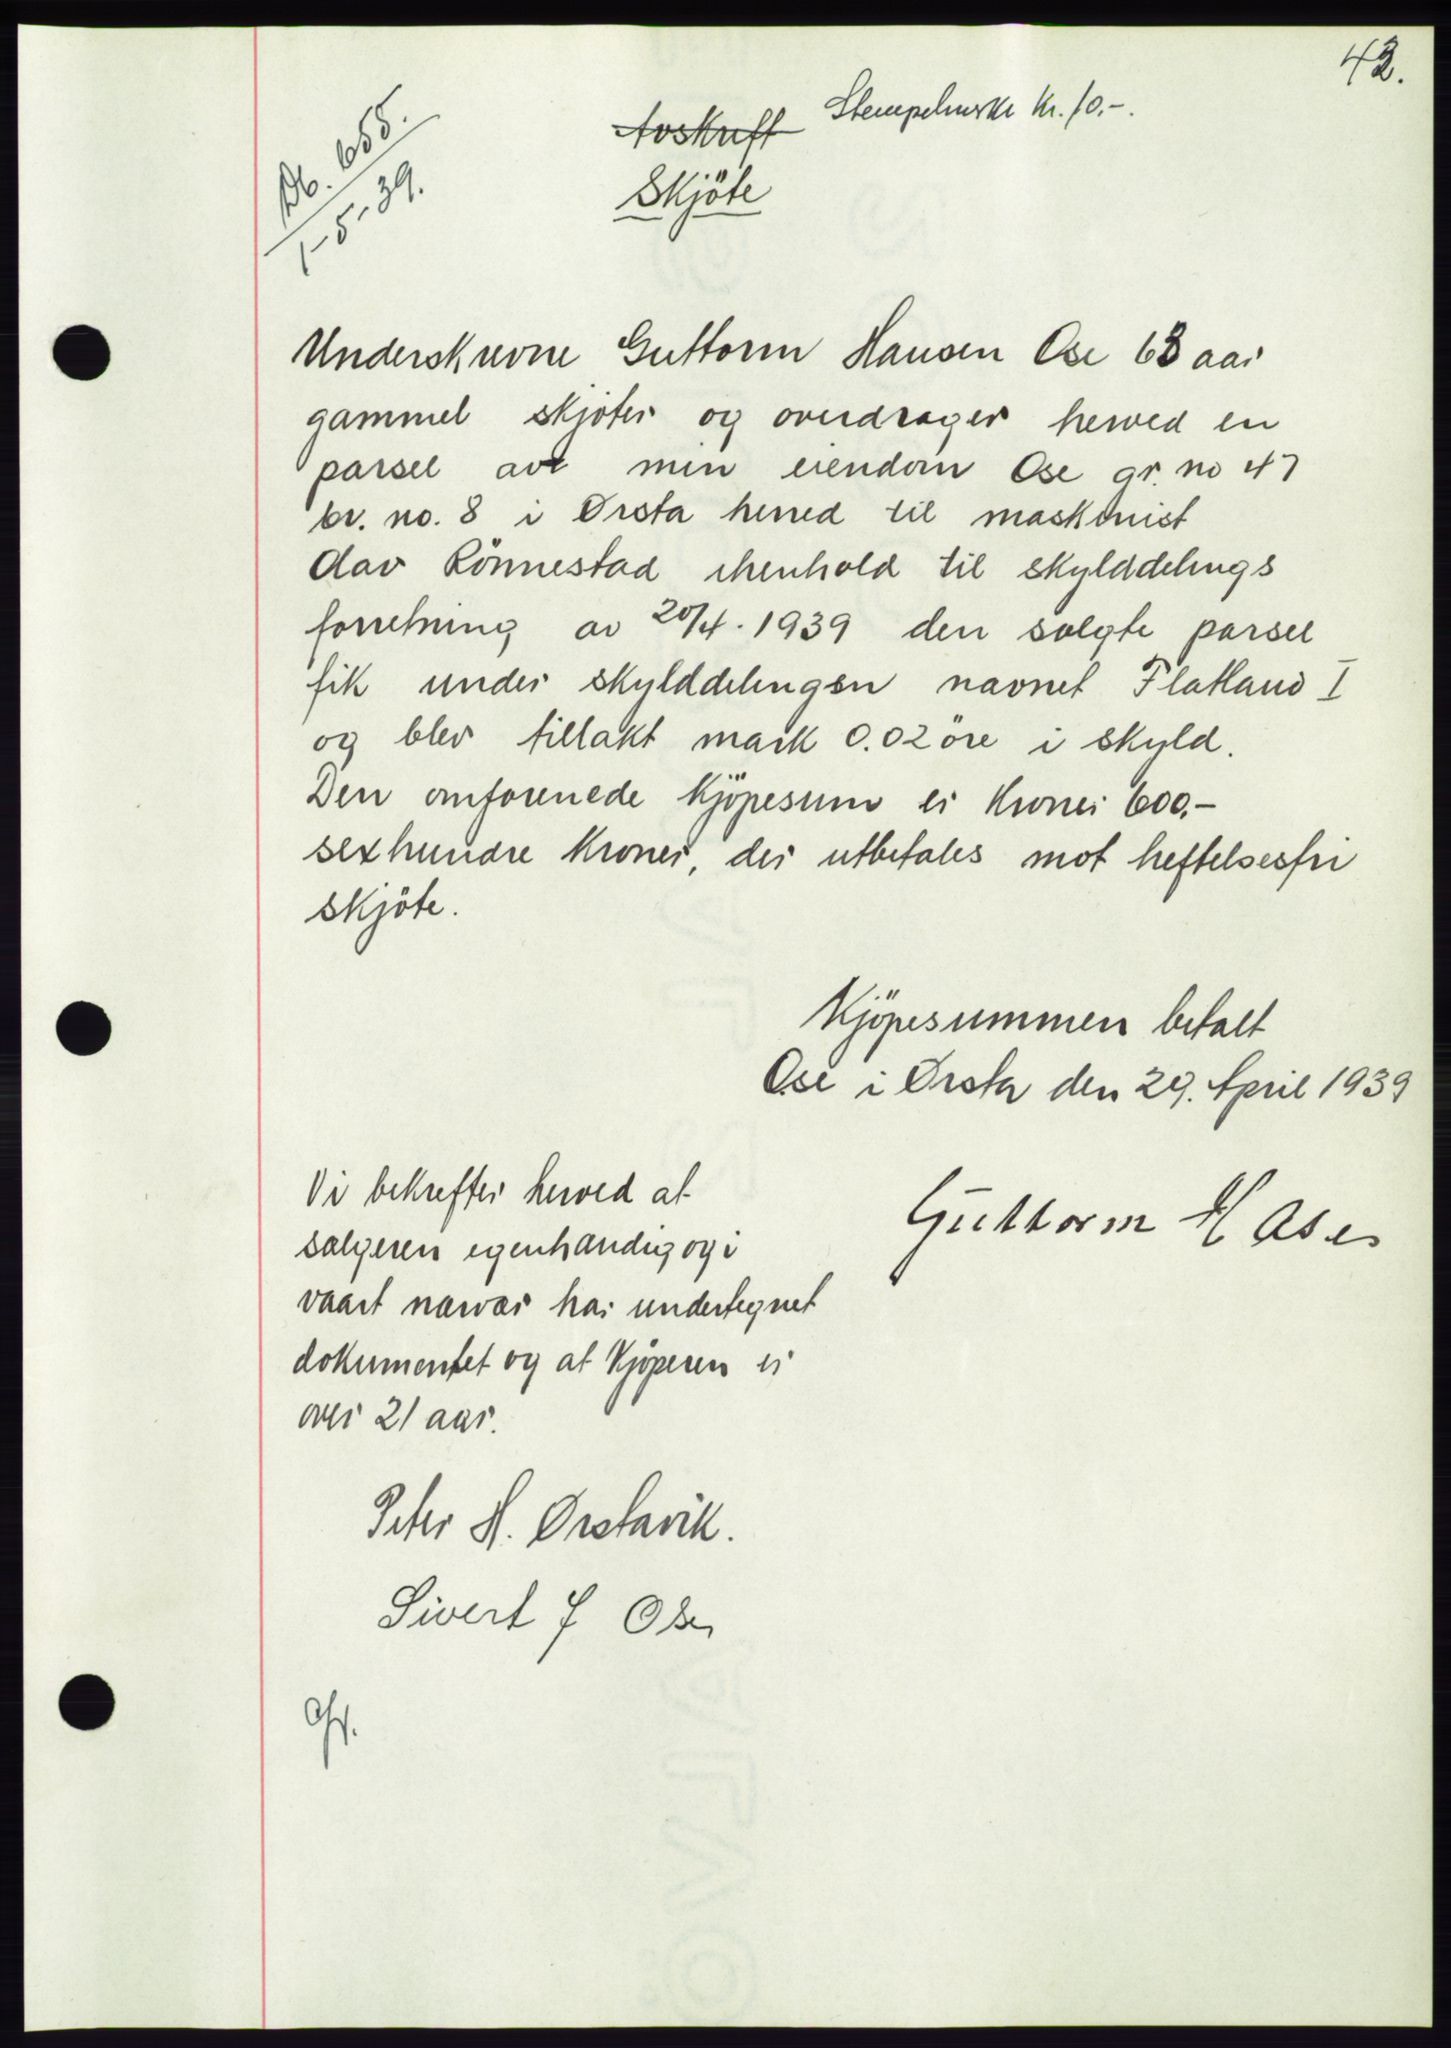 42.
Stempelmerke Kr. 10.-.
Avskrift
Skjöte
Db. 658.
1-5-39.
Underskrevne Guttorm Hansen Ose 63 aar
gammel skjöter og overdrager herved en
parsel av min eiendom Ose gr. no 47
br. no. 8 i Ørsta herred til maskinist
Olav Rönnestad ihenhold til skylddelings
forretning av 20/4. 1939 den solgte parsel
fik under skylddelingen navnet Flatland I
og blev tillakt mark 0.02 öre i skyld.
Den omforenede Kjöpesum er Kroner 600,-
sexhundre Kroner, der utbetales mot heftelsesfri
skjöte.
Kjöpesummen betalt
Ose i Ørsta den 29. April 1939
Guttorm H Ose
Vi bekrefter herved at
sælgeren egenhændig og i
vaart nærvær har undertegnet
dokumentet og at Kjöperen er
over 21 aar.
Peter H. Ørstavik.
Sivert J Ose